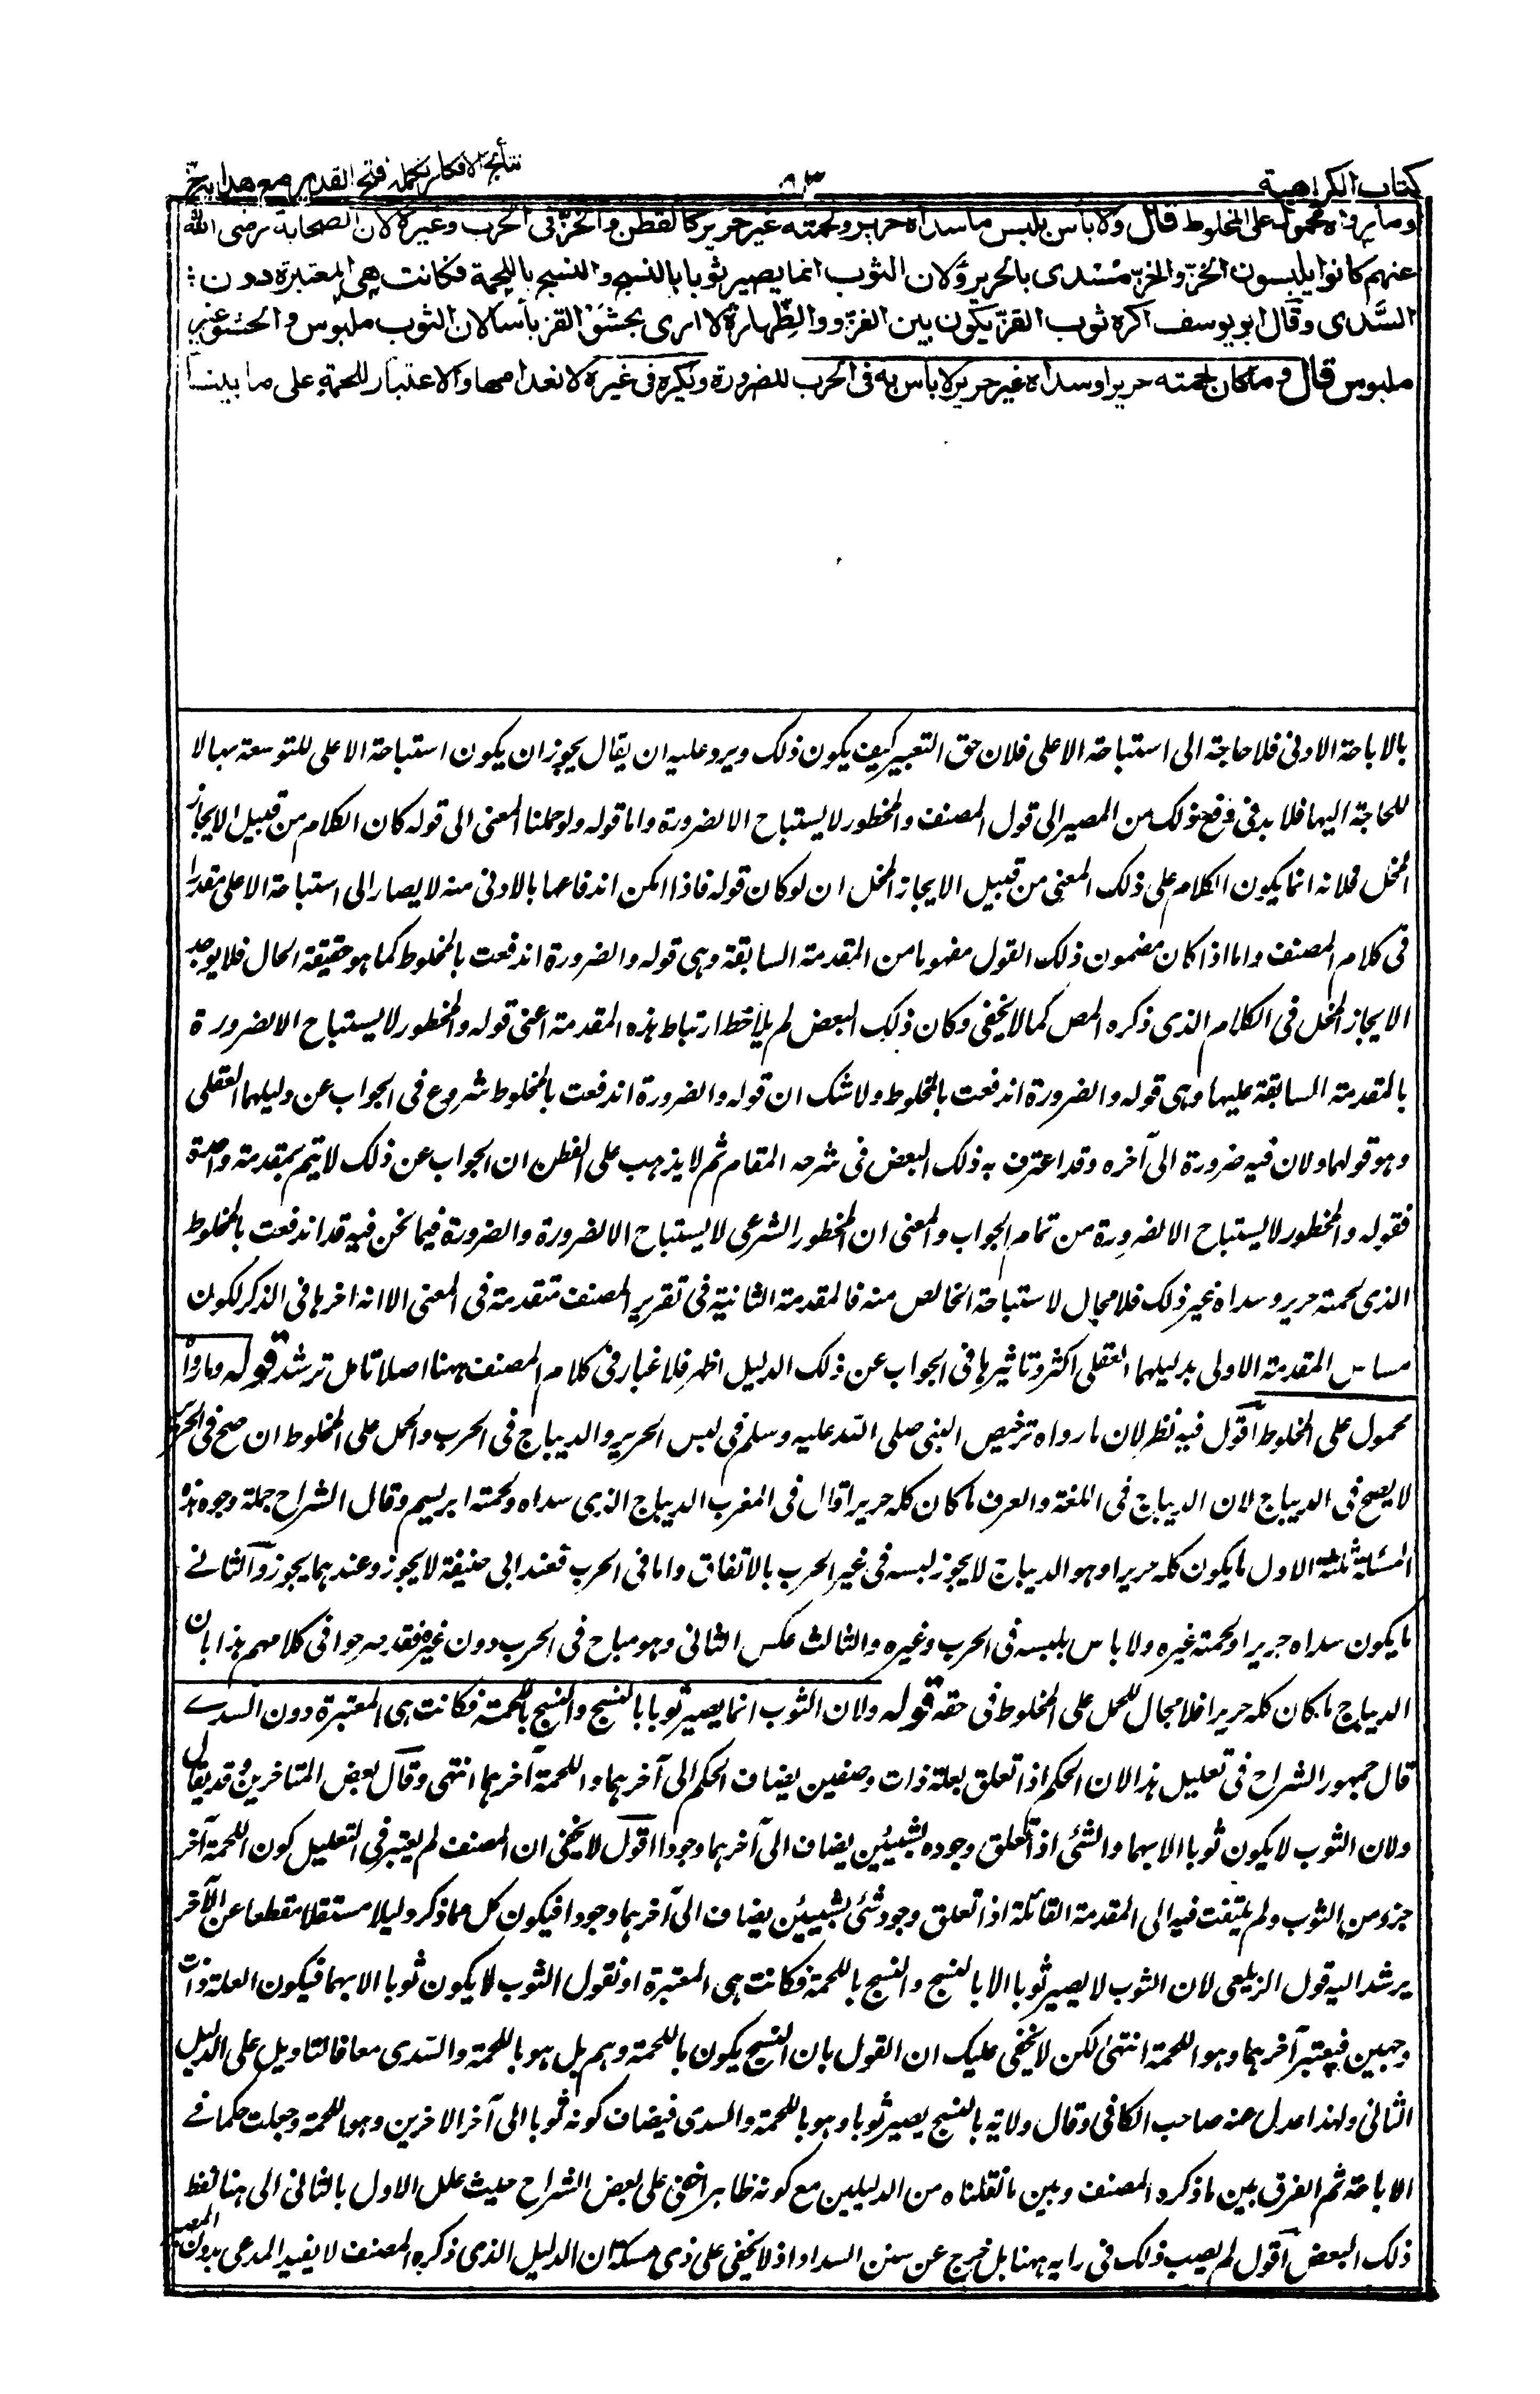 كتاب الكراهية
٨٣
نتائج الافكار تكملة فتح القدير مع هداية ج
وما يرواه محمول على المخلوط قال ولا بأس بلبس ما سداه حرير ولحمته غير حرير كالقطن والخز فى الحرب وغيره لان الصحابة رضى الله
عنهم كانوا يلبسون الخز والخز مسدى بالحرير ولان الثوب انما يصير ثوبا بالنسج والنسج باللحمة فكانت هى المعتبرة دون
السدى وقال ابو يوسف اكره ثوب القز يكون بين الفرو والظهارة ولا ارى بحشو القز بأسا لان الثوب ملبوس والحشو غير
ملبوس قال وما كان لحمته حريرا وسداه غير حرير لا بأس به فى الحرب للضرورة ويكره فى غيره لانعدامها والاعتبار للحمة على ما بينا
بالاباحة الادنى فلا حاجة الى استباحة الاعلى فلان حق التعبير كيف يكون ذلك ويرد عليه ان يقال يجوز ان يكون استباحة الاعلى للتوسعة بها لا
للحاجة اليها فلا بد فى دفع ذلك من المصير الى قول المصنف والمحظور لا يستباح الا لضرورة واما قوله ولو حملنا المعنى الى قوله كان الكلام من قبيل الايجاز
المخل فلانه انما يكون الكلام على ذلك المعنى من قبيل الايجاز المخل ان لو كان قوله فاذا امكن اندفاعها بالادنى منه لا يصار الى استباحة الاعلى مقدرا
فى كلام المصنف واما اذا كان مضمون ذلك القول مفهوما من المقدمة السابقة وهى قوله والضرورة اندفعت بالمخلوط كما هو حقيقة الحال فلا يوجد
الايجاز المخل فى الكلام الذى ذكره المص كما لا يخفى وكان ذلك البعض لم يلاحظ ارتباط هذه المقدمة اعنى قوله والمحظور لا يستباح الا لضرورة
بالمقدمة السابقة عليها وهى قوله والضرورة اندفعت بالمخلوط ولا شك ان قوله والضرورة اندفعت بالمخلوط شروع فى الجواب عن دليلهما العقلى
وهو قولهما ولان فيه ضرورة الى آخره وقد اعترف به ذلك البعض فى شرحه المقام ثم لا يذهب على الفطن ان الجواب عن ذلك لا يتم بمقدمة واحدة
فقوله والمحظور لا يستباح الا لضرورة من تمام الجواب والمعنى ان المحظور الشرعى لا يستباح الا لضرورة والضرورة فيما نحن فيه قد اندفعت بالمخلوط
الذى لحمته حرير وسداه غير ذلك فلا مجال لاستباحة الخالص منه فالمقدمة الثانية فى تقرير المصنف متقدمة فى المعنى الا انه اخرها فى الذكر لكون
مساس المقدمة الاولى بدليلهما العقلى اكثر وتاثيرها فى الجواب عن ذلك الدليل اظهر فلا غبار فى كلام المصنف ههنا اصلا تامل ترشد قوله وما رواه
محمول على المخلوط اقول فيه نظر لان ما رواه ترخيص النبى صلى الله عليه وسلم فى لبس الحرير والديباج فى الحرب والحمل على المخلوط ان صح فى الحرير
لا يصح فى الديباج لان الديباج فى اللغة والعرف ما كان كله حريرا قال فى المغرب الديباج الذى سداه ولحمته ابريسم وقال الشراح جملة وجوه هذه
المسئلة ثلثة الاول ما يكون كله حريرا وهو الديباج لا يجوز لبسه فى غير الحرب بالاتفاق واما فى الحرب فعند ابى حنيفة لا يجوز وعندهما يجوز والثانى
ما يكون سداه حريرا ولحمته غيره ولا باس بلبسه فى الحرب وغيره والثالث عكس الثانى وهو مباح فى الحرب دون غيره فقد صرحوا فى كلامهم هذا بان
الديباج ما كان كله حريرا فلا مجال للحمل على المخلوط فى حقه قوله ولان الثوب انما يصير ثوبا بالنسج والنسج باللحمة فكانت هى المعتبرة دون السدى
قال جمهور الشراح فى تعليل هذا لان الحكم اذا تعلق بعلة ذات وصفين يضاف الحكم الى آخرهما واللحمة آخرهما انتهى وقال بعض المتاخرين وقد يقال
ولان الثوب لا يكون ثوبا الا بهما والشئ اذا تعلق وجوده بشيئين يضاف الى آخرهما وجودا اقول لا يخفى ان المصنف لم يعتبر فى التعليل كون اللحمة آخر
جزء من الثوب ولم يلتفت فيه الى المقدمة القائلة اذا تعلق وجود شئ بشيئين يضاف الى آخرهما وجودا فيكون كل مما ذكر دليلا مستقلا منقطعا عن الآخر
يرشد اليه قول الزيلعى لان الثوب لا يصير ثوبا الا بالنسج والنسج باللحمة فكانت هى المعتبرة او نقول الثوب لا يكون ثوبا الا بهما فيكون العلة ذات
وجهين فيعتبر آخرهما وهو اللحمة انتهى لكن لا يخفى عليك ان القول بان النسج يكون باللحمة وهم بل هو باللحمة والسدى معا فالتاويل على الدليل
الثانى ولهذا عدل عنه صاحب الكافى وقال ولانه بالنسج يصير ثوبا وهو باللحمة والسدى فيضاف كونه ثوبا الى آخر الاخرين وهو اللحمة وجعلت حكما فى
الاباحة ثم الفرق بين ما ذكره المصنف وبين ما نقلناه من الدليلين مع كونه ظاهرا خفى على بعض الشراح حيث علل الاول بالثانى الى هنا لفظ
ذلك البعض اقول لم يصب ذلك فى رايه ههنا بل خرج عن سنن السداد اذ لا يخفى على ذى مسكة ان الدليل الذى ذكره المصنف لا يفيد المدعى بدون المصير